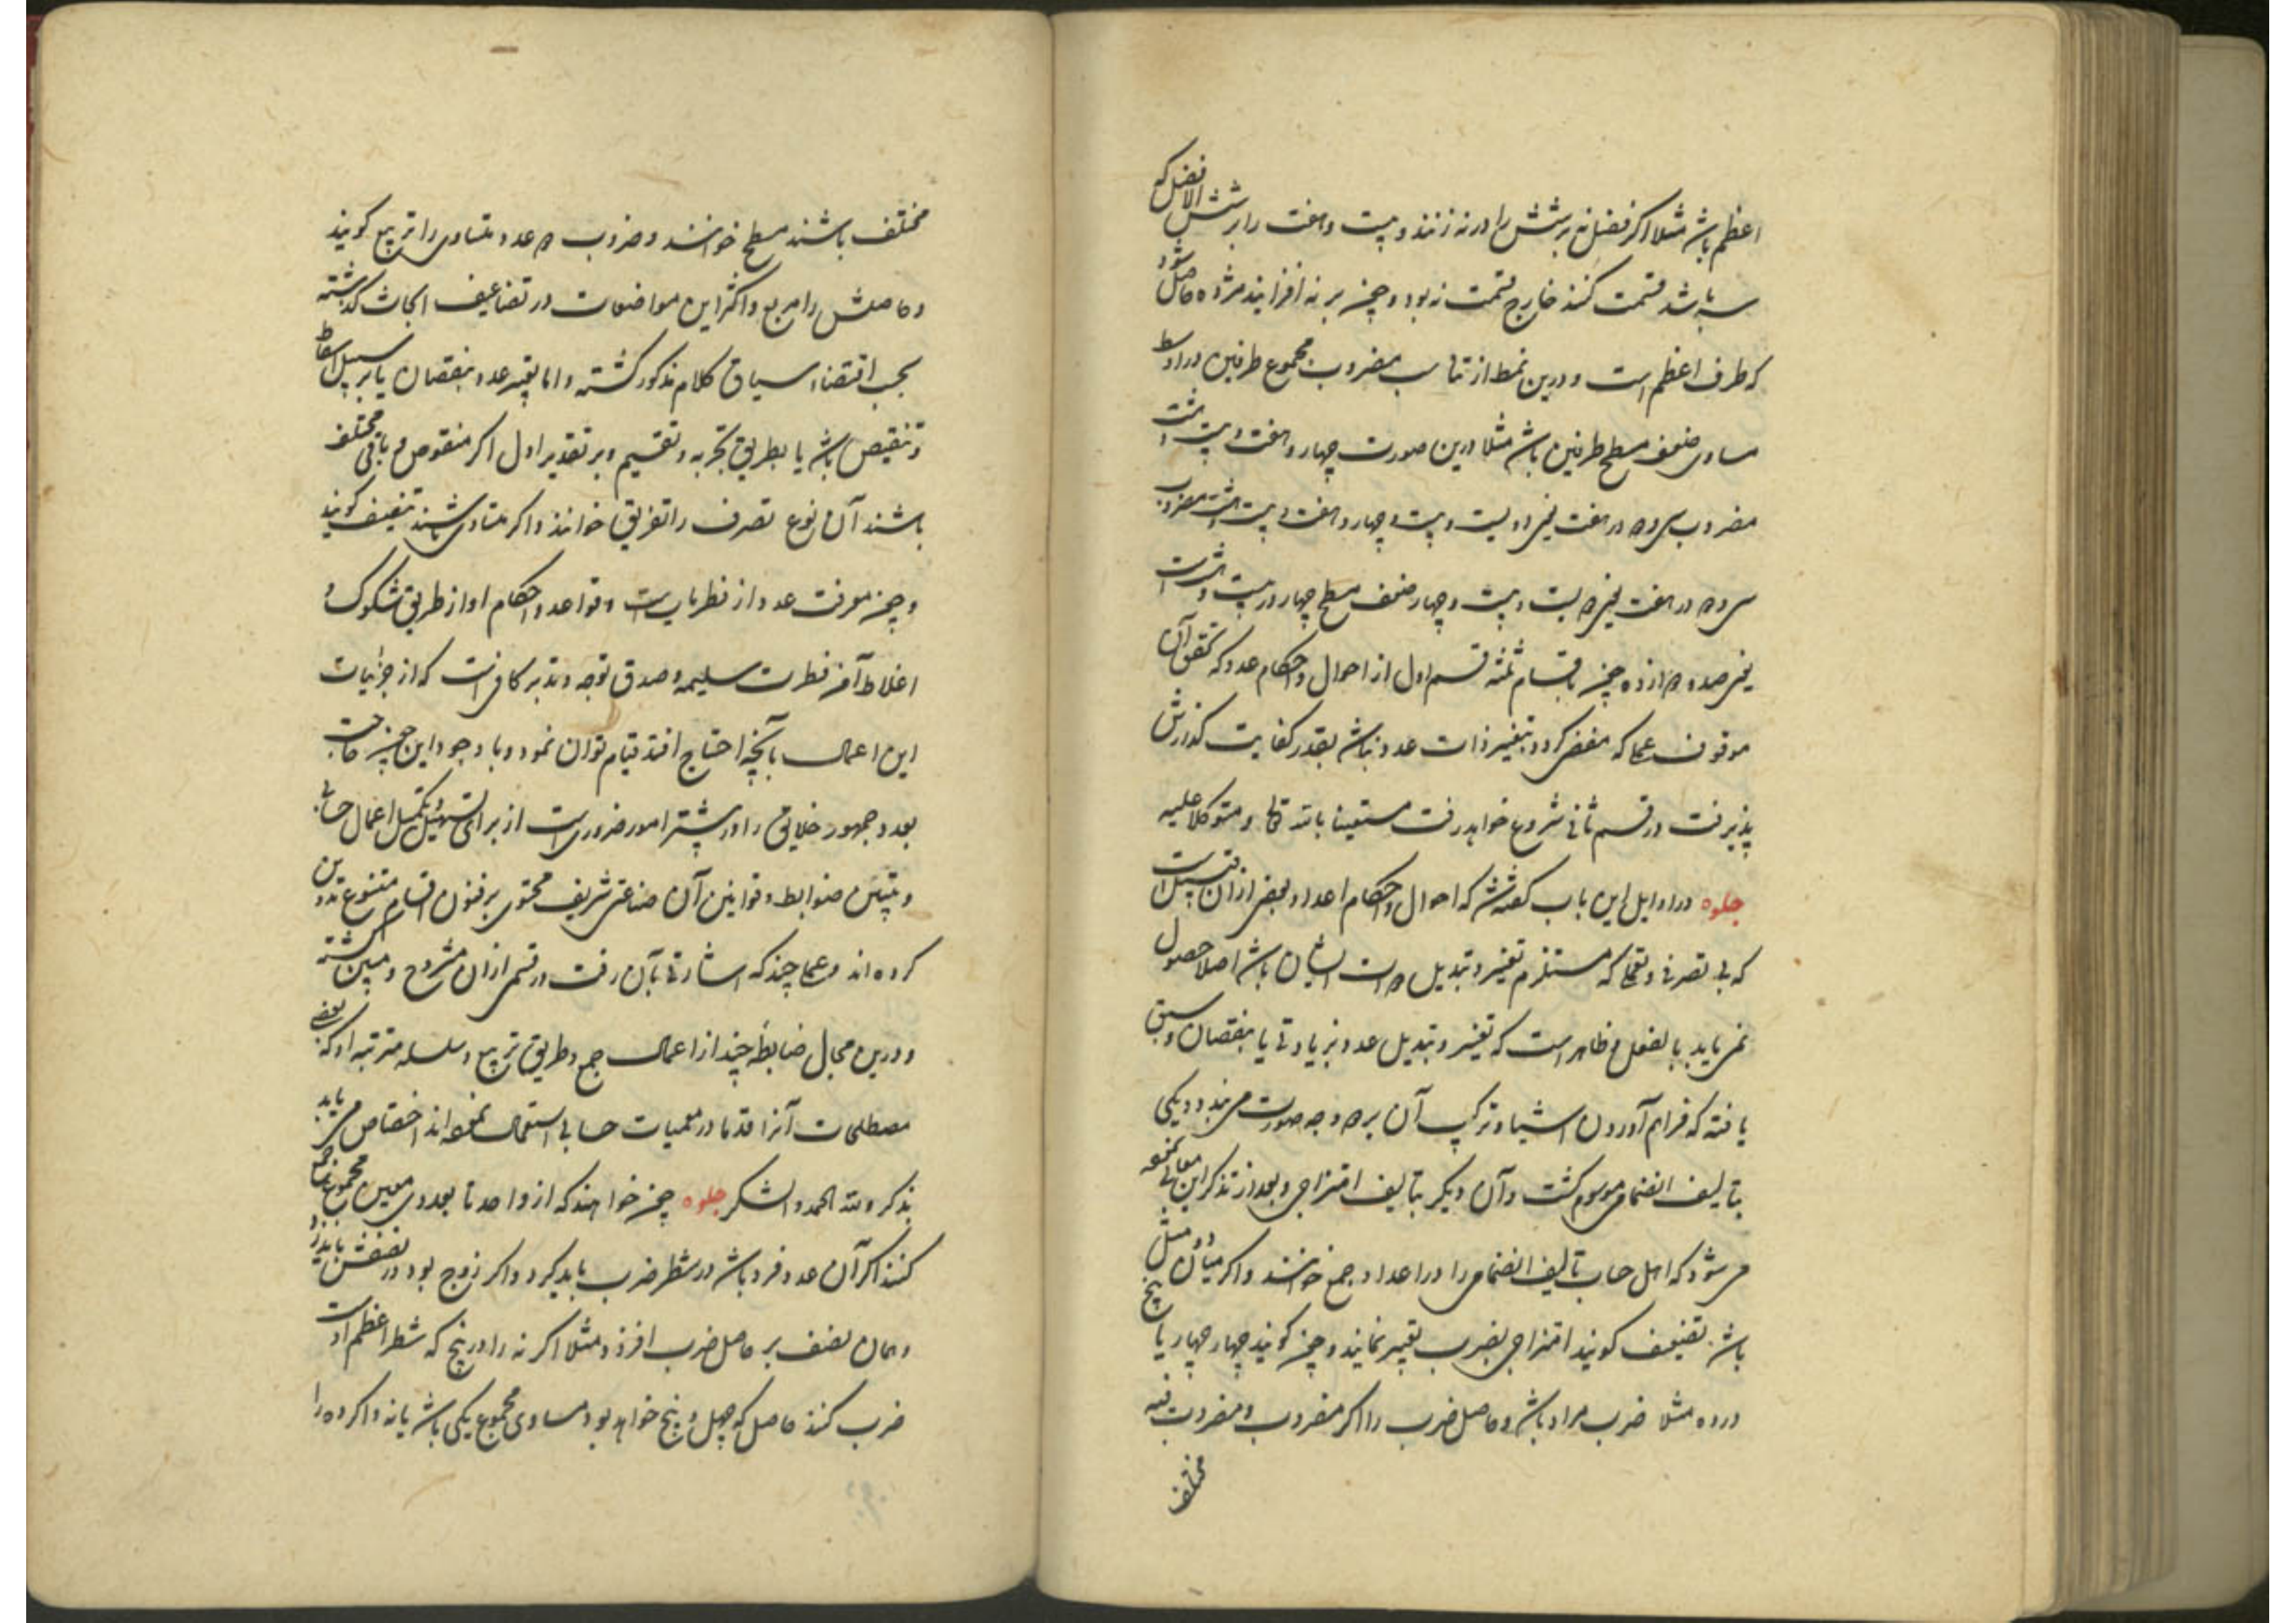 اعظم باشد مثلا اگر فضل نه بر شش را در نه زنند و بیست و هفت را بر شش الا فضل که
سه باشد قسمت کنند خارج قسمت نه بود و چون بر نه افزایند هژده حاصل شود
که طرف اعظم است و درین نمط از تناسب مضروب مجموع طرفین در اوسط
مساوی ضعف مسطح طرفین باشد مثلا درین صورت چهار و هفت و بیست و هشت
مضروب سی و دو در هفت یعنی دویست و بیست و چهار و هفت و بیست
سی و دو در هفت یعنی دویست و بیست و چهار ضعف مسطح چهار در بیست و هشت است
یعنی صد و دوازده چون باقسام ثلثه قسم اول از احوال و احکام عدد که تحقق آن
موقوف عملی که مفضی گردد بتغییر ذات عدد نباشد بقدر کفایت گذارش
پذیرفت در قسم ثانی شروع خواهد رفت مستعینا بالله تعالی و متوکلا علیه
جلوه در اوایل این باب گفته شد که احوال و احکام اعداد بعضی ازان قبیل است
که بی تصرفی و تعملی که مستلزم تغییر و تبدیل ذات ایشان باشد اصلا حصول
نمی یابد بالفعل و ظاهر است که تغییر و تبدیل عدد بزیادتی یا بنقصان و سبق
یافته که فراهم آوردن اشیا و ترکیب آن بر دو وجه صورت می بندد و یکی
بتالیف انضمامی موسوم گشت و آن دیگر بتالیف امتزاجی و بعد از تذکر این معانی نموده
می شود که اهل حساب تالیف انضمامی را در اعداد جمع خوانند و اگر میان دو مثل
باشد تضعیف گویند امتزاجی بضرب تعبیر نمایند و چون گویند چهار چهار یا پنج
در ده مثلا ضرب مراد باشد و حاصل ضرب را اگر مضروب و مضروب فیه
مختلف
مختلف باشند مسطح خوانند و ضرب دو عدد متساوی را تربیع گویند
و حاصلش را مربع و اکثر این مواضعات در تضاعیف ابحاث گذشته
بحسب اقتضاء سیاق کلام مذکور گشته و اما تغییر عدد بنقصان یا بر سبیل اسقاط
و تنقیص باشد یا بطریق تجزیه و تقسیم و بر تقدیر اول اگر منقوص و باقی مختلف
باشند آن نوع تصرف را تفریق خوانند و اگر متساوی باشند تنصیف گویند
و چون معرفت عدد از فطریات است و قواعد و احکام او از طریق شکوک و
اغلاط آمن فطرت سلیمه و صدق توجه و تدبر کافی است که از جزئیات
این اعمال بآنچه احتیاج افتد قیام توان نمود و با وجود این چون حاجت
بعد و جمهور خلایق را در بیشتر امور ضروری است از برای تسهیل و تکمیل اعمال حسابی
و تبیین ضوابط و قوانین آن صناعتی شریف محتوی بر فنون اقسام متنوع تدوین
کرده اند و عملی چند که اشارتی بآن رفت در قسمی ازان مشروح و مبین گشته
و درین مجال ضابطه چند از اعمال جمع و طریق تربیع و سلسله مترتبه او که بعضی
مصطلحات آنرا قدما در معمیات حسابی استعمال نموده اند اختصاص می یابد
بذکر و لله الحمد و الشکر جلوه چون خواهند که از واحد تا بعددی معین مجموع را جمع
کنند اگر آن عدد فرد باشد در شطر ضرب باید کرد و اگر زوج بود در نصفش باید زد
و همان نصف بر حاصل ضرب افزود مثلا اگر نه را در پنج که شطر اعظم اوست
ضرب کنند حاصل که چهل و پنج خواهد بود مساوی مجموع یکی باشد تا نه و اگر ده را